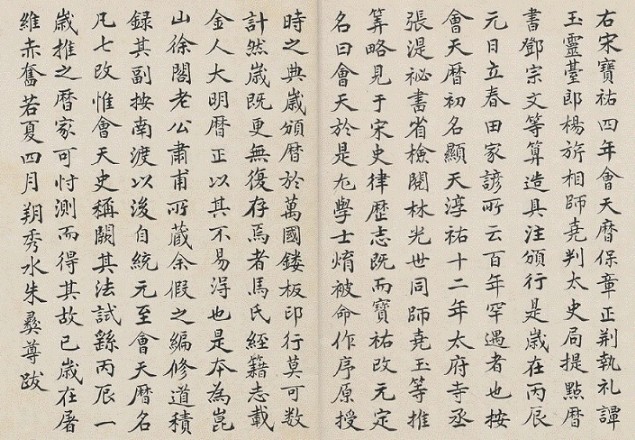 右宋寶祐四年會天曆保章正荆執礼譚
玉靈臺郎楊旂相師堯判太史局提點曆
書鄧宗文等算造具注頒行是歲在丙辰
元日立春田家諺所云百年罕遇者也按
會天曆初名顯天淳祐十二年太府寺丞
張湜祕書省檢閱林光世同師堯玉等推
筭略見于宋史律歷志既而寶祐改元定
名曰會天於是尤學士焴被命作序原授
時之典歲頒曆於萬國鏤板印行莫可數
計然歲既更無復存焉者馬氏經籍志載
金人大明曆正以其不易得也是本為崑
山徐閣老公肅甫所藏余假之編修道積
録其副按南渡以後自統元至會天曆名
凡七改惟會天史稱闕其法試繇丙辰一
歲推之曆家可忖測而得其故已歲在屠
維赤奮若夏四月朔秀水朱彝尊跋